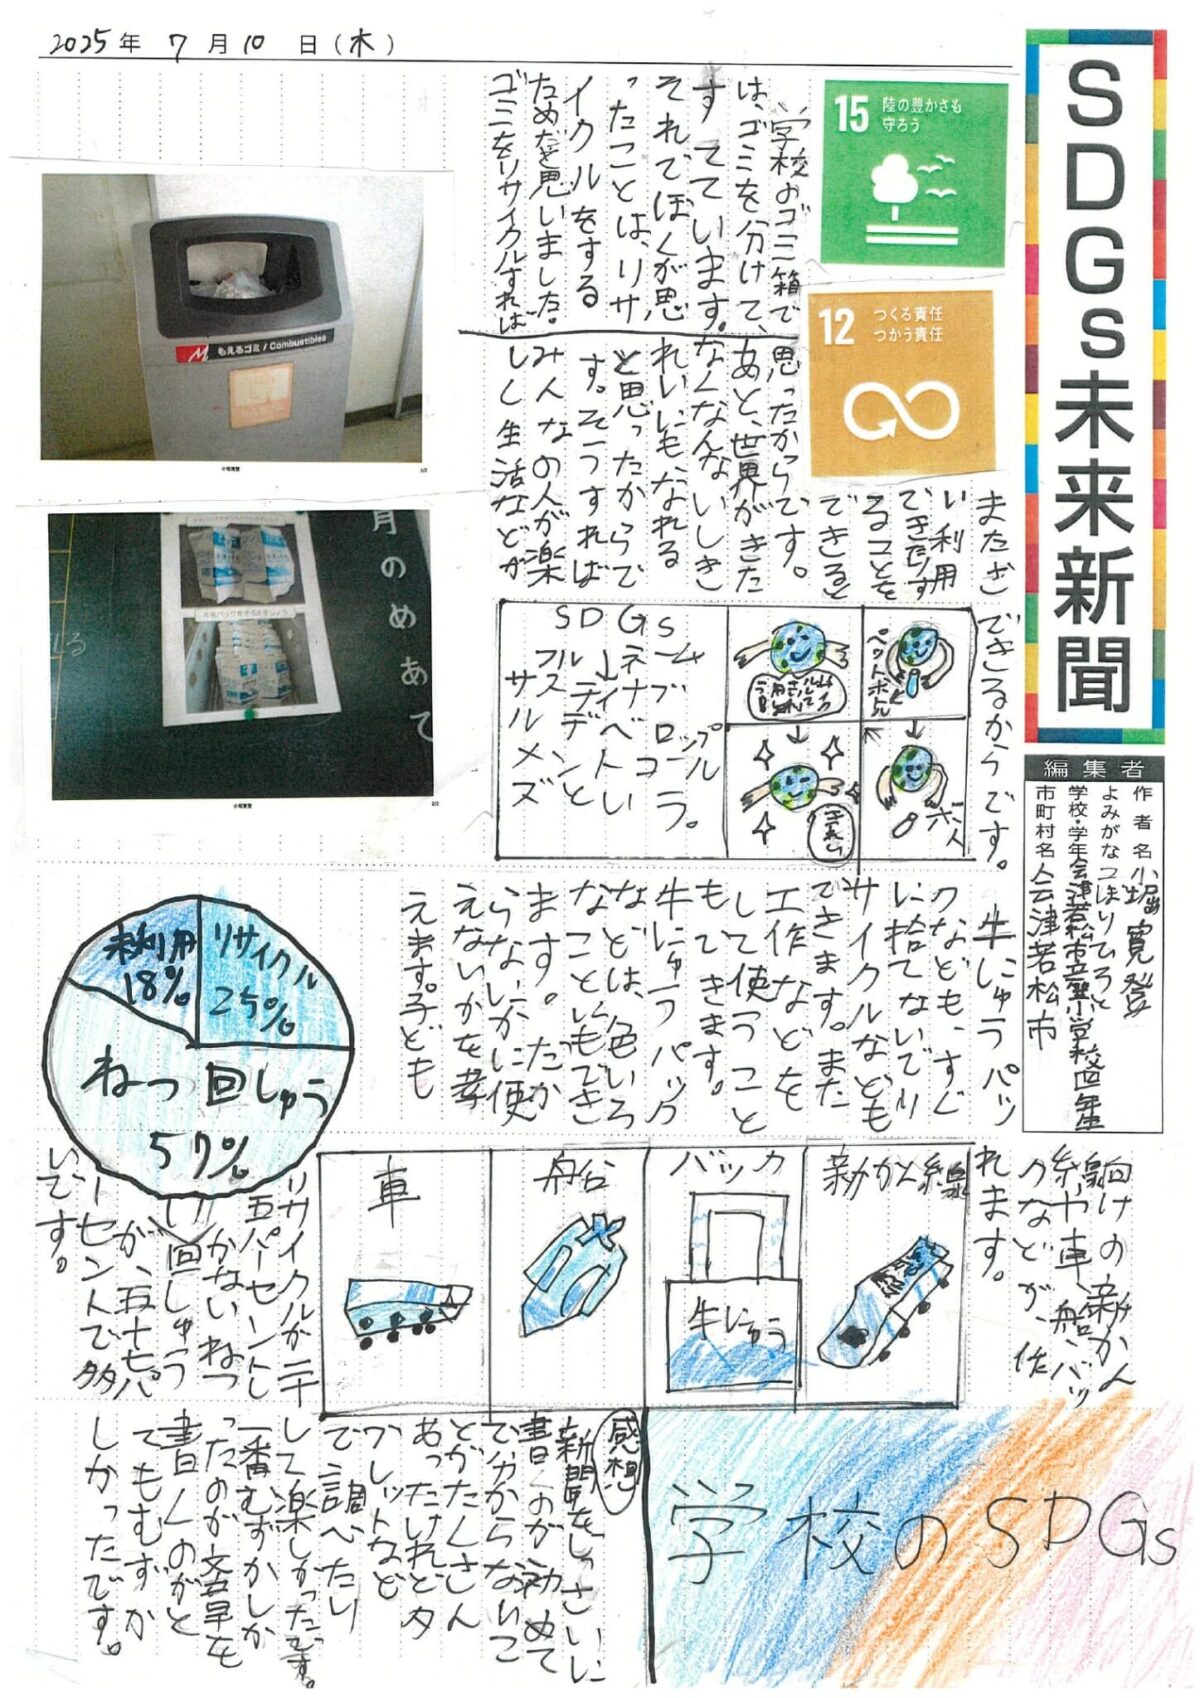 2025年 7月10日(木)
SDGs未来新聞
編集者
作者名 小堀寛登
よみがな こぼりひろと
学校・学年 会津若松市立 小学校四年生
市町村名 会津若松市
15 陸の豊かさも
守ろう
12 つくる責任
つかう責任
学校のゴミ箱で
は、ゴミを分けて、
すてています。
それでぼくが思
ったことは、リサ
イクルをする
ためだと思いました。
ゴミをリサイクルすれば
またざ
い利用
できたりす
ることを
できると
思ったからです。
あと、世界がきた
なくなんないしき
れいにもなれる
と思ったからで
す。そうすれば
みんなの人が楽
しく生活などが
できるからです。
もえるゴミ / Combustibles
月のめあて
SDGs
↓
サステイナブル
ディベロップメント
ゴールズ
ペットボトル
ポイ
きれい
牛にゅうパッ
クなども、すぐ
に捨てないでリ
サイクルなども
できます。また
工作などを
して使うこと
もできます。
牛にゅうパック
などは、色いろ
なことにもでき
ます。だか
らなにかに使
えないかを考
えます。子ども
向けの新かん
線や車、船、バッ
クなどが、作
れます。
未利用
18%
リサイクル
25%
ねつ回しゅう
57%
新かん線
バック
牛にゅう
船
車
リサイクルが二十
五パーセントし
かない、ねつ
回しゅう
が、五十七パ
ーセントで多
いです。
学校のSDGs
感想
新聞をじっさいに
書くのが初めて
でわからないこ
とがたくさん
あったけれどタ
ブレットなど
で調べたり
して楽しかったです。
一番むずかしか
ったのが文章を
書くのがと
てもむずか
しかったです。